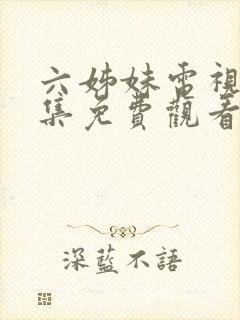 六姊妹電視
集免費觀看
深藍不語